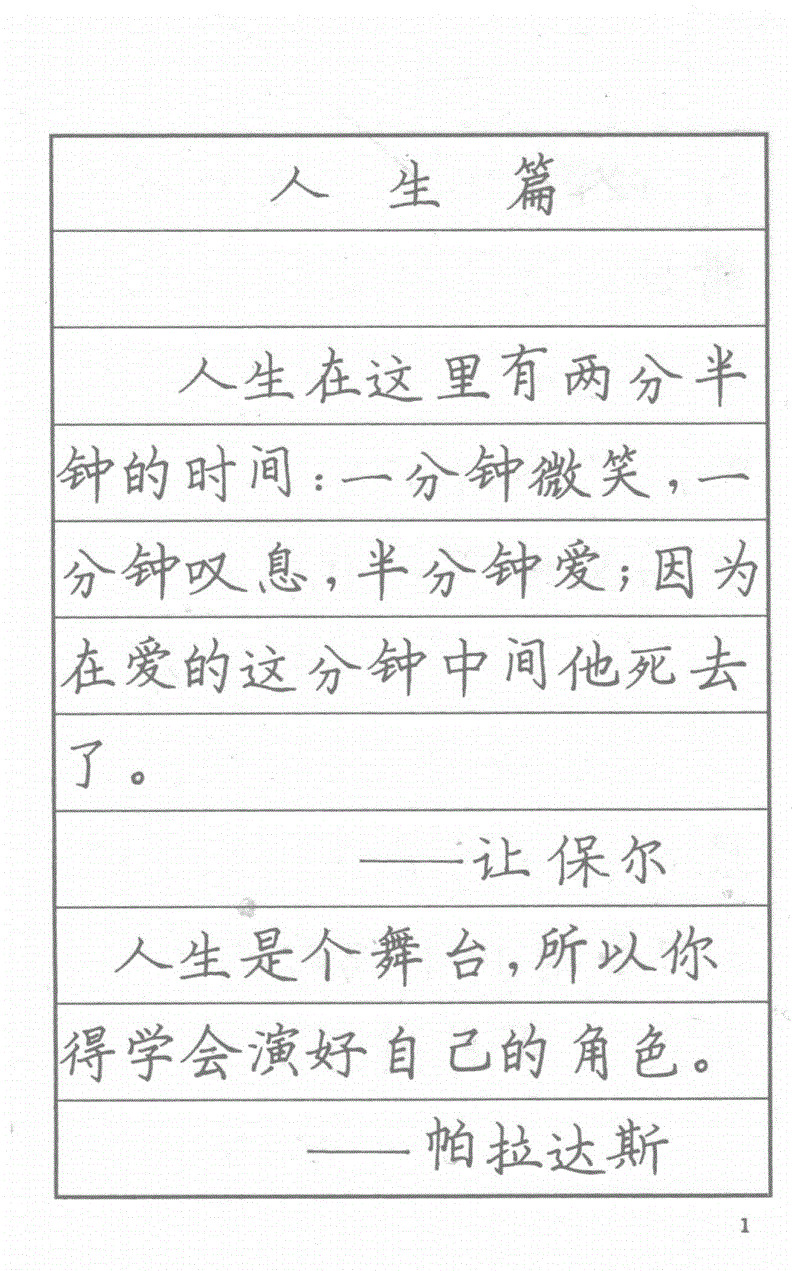 人 生 篇
人生在这里有两分半
钟的时间：一分钟微笑，一
分钟叹息，半分钟爱；因为
在爱的这分钟中间他死去
了。
——让保尔
人生是个舞台，所以你
得学会演好自己的角色。
——帕拉达斯
1